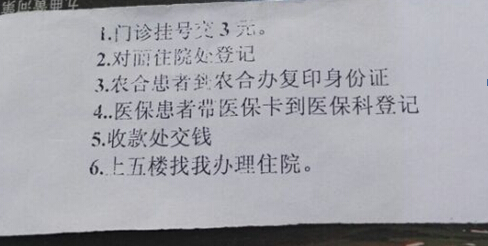 九曲黄河第
1.门诊挂号交 3 元。
2.对面住院处登记
3.农合患者到农合办复印身份证
4..医保患者带医保卡到医保科登记
5.收款处交钱
6.上五楼找我办理住院。